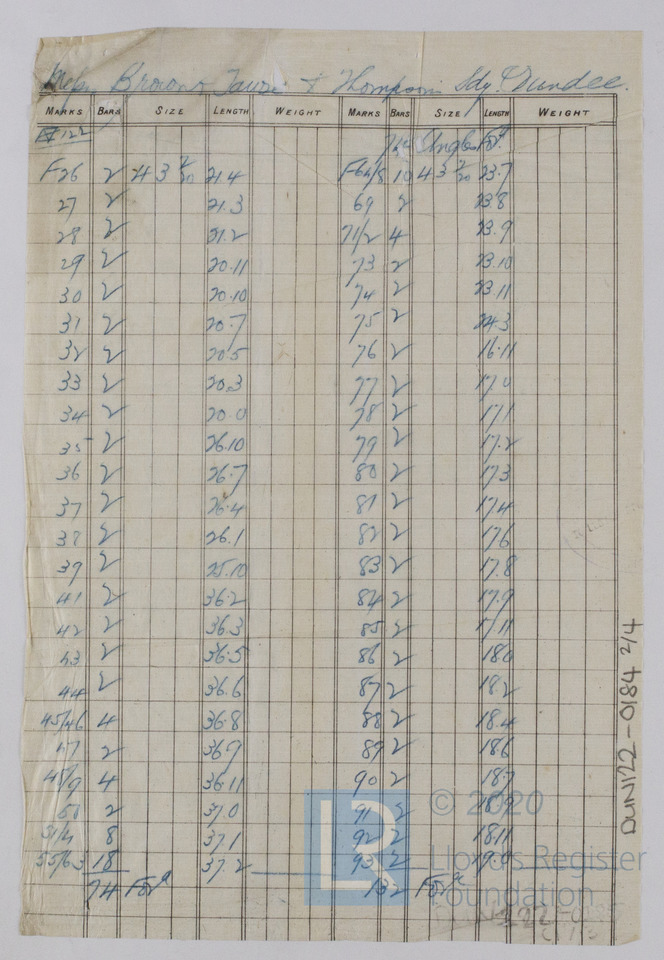 Messrs Brown & Thompson Ldg. Dundee.
MARKS BARS SIZE LENGTH WEIGHT MARKS BARS SIZE LENGTH WEIGHT
122 74 Angles Ford
F26 2 4 3 7/20 21.4 F64/8 10 4 3 7/20 23.7
27 2 21.3 69 2 23.8
28 2 21.2 71/2 4 23.9
29 2 20.11 73 2 23.10
30 2 20.10 74 2 23.11
31 2 20.7 75 2 24.3
32 2 20.5 76 2 16.11
33 2 20.3 77 2 17.0
34 2 20.0 78 2 17.1
35 2 26.10 79 2 17.2
36 2 26.7 80 2 17.3
37 2 26.4 81 2 17.4
38 2 26.1 82 2 17.6
39 2 25.10 83 2 17.8
41 2 36.2 84 2 17.9
42 2 36.3 85 2 17.11
43 2 36.5 86 2 18.0
44 2 36.6 87 2 18.2
45/46 4 36.8 88 2 18.4
47 2 36.9 89 2 18.6
4 36.11 90 2 18.7
50 2 37.0 91 2 18.9
51/4 8 37.1 92 2 18.11
55/63 18 37.2 93 2
74 Ford 132 Ford
DUN122-0184 2/4
© 2020
Lloyd's Register
Foundation
LR